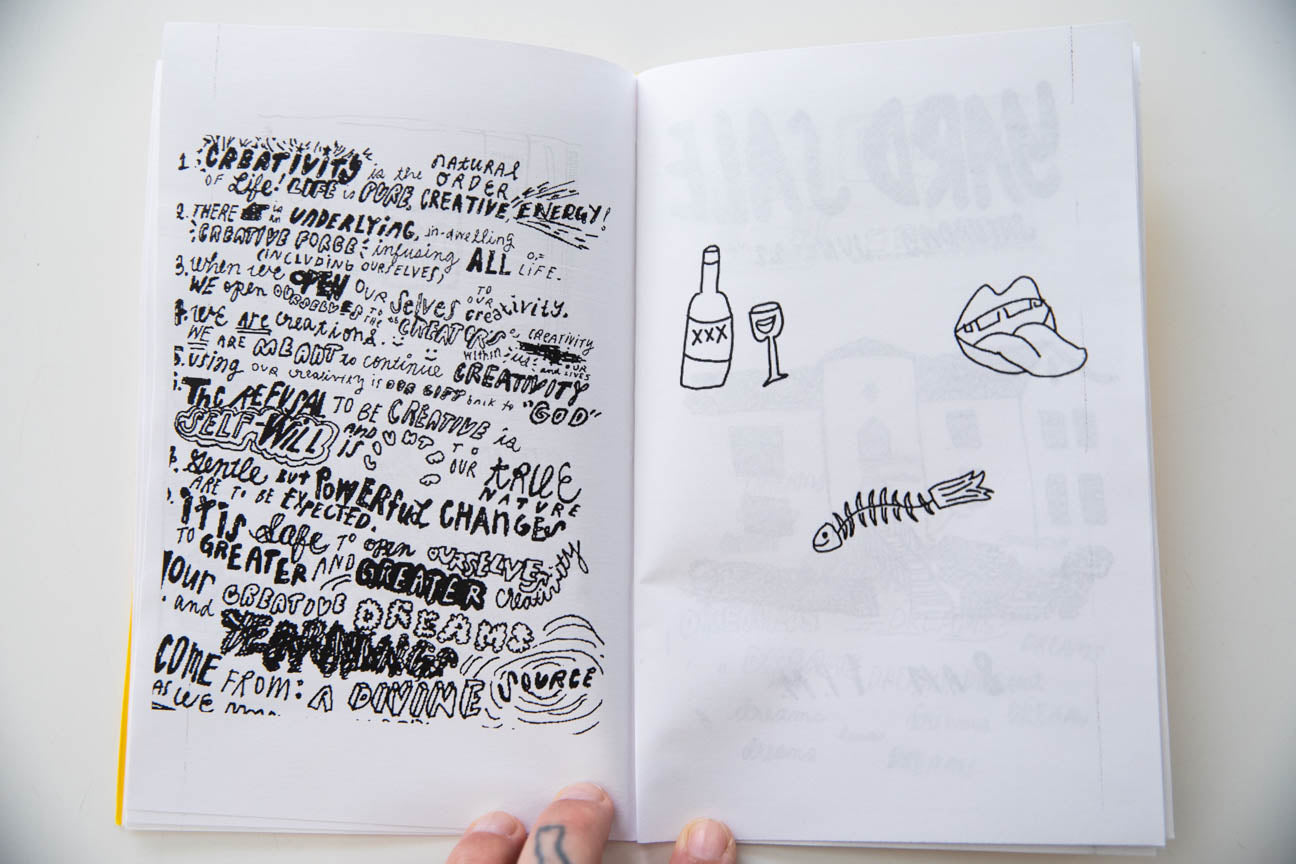 1. CREATIVITY is the NATURAL ORDER
OF Life! LIFE is PURE, CREATIVE, ENERGY!
2. THERE is an UNDERLYING, in-dwelling
CREATIVE FORCE infusing ALL OF LIFE.
(INCLUDING OURSELVES,
3. When we OPEN OUR selves TO OUR creativity.
WE open OURSELVES TO THE CREATORS CREATIVITY
within us and OUR LIVES
we are creations.
WE ARE MEANT to continue CREATIVITY
5. using OUR creativity is OUR GIFT back to "GOD"
The REFUSAL TO BE CREATIVE is
SELF-WILL AND IS
TO OUR TRUE NATURE
Gentle BUT POWERFUL CHANGES
ARE TO BE EXPECTED.
IT IS Safe TO open OURSELVES
TO GREATER AND GREATER creativity
YOUR CREATIVE DREAMS
and YEARNINGS
COME FROM: A DIVINE SOURCE
AS WE
XXX
YARD SALE
SATURDAY
8 AM
DREAMS
dreams
dreams